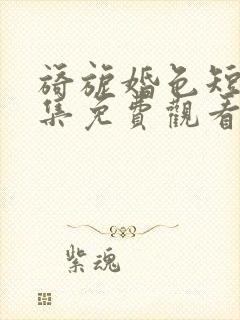 旖旎婚色短
集免費觀看
紫魂